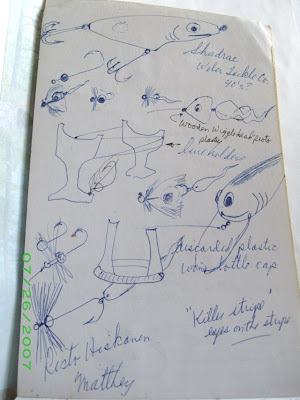 Shadrac
Water Tackle Co.
40's?
Wooden Wigglehead proto
plastic
line holders
discarded plastic
wine bottle cap
"Killer strips"
eyes on the strips
Risto Hiskanen
Matthey
07/26/2007